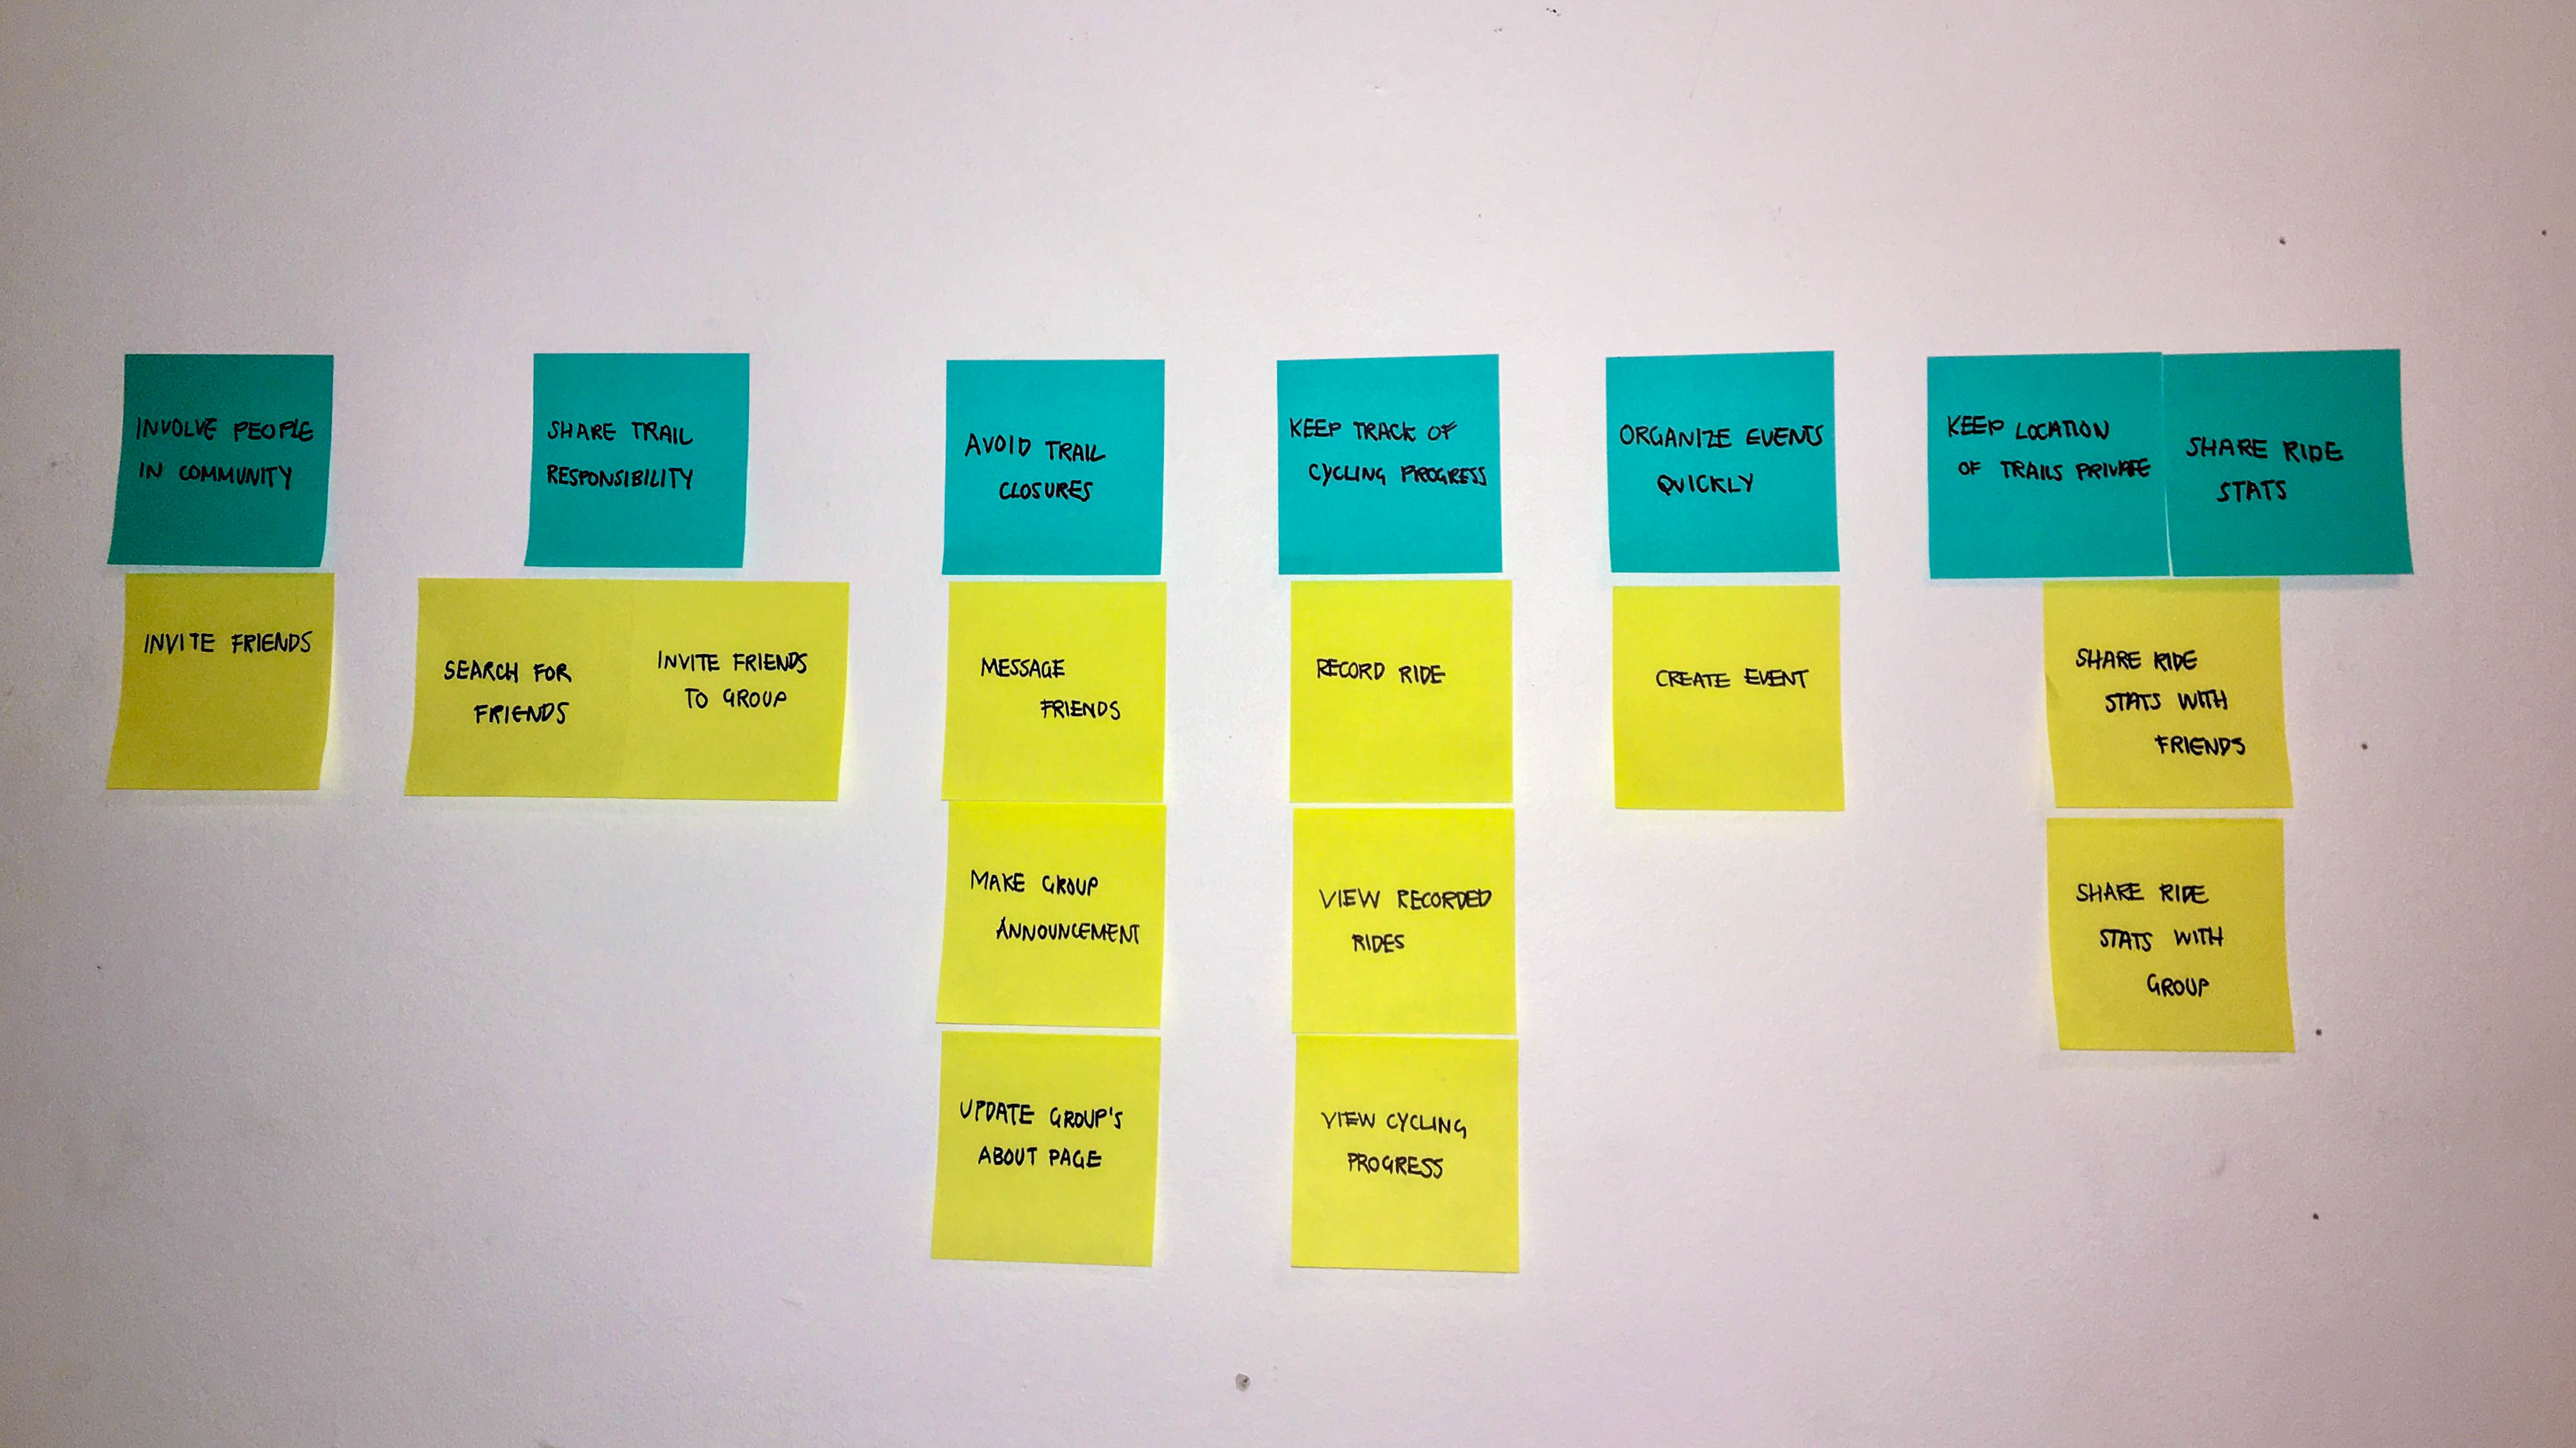 INVOLVE PEOPLE
IN COMMUNITY
INVITE FRIENDS
SHARE TRAIL
RESPONSIBILITY
SEARCH FOR
FRIENDS
INVITE FRIENDS
TO GROUP
AVOID TRAIL
CLOSURES
MESSAGE
FRIENDS
MAKE GROUP
ANNOUNCEMENT
UPDATE GROUP'S
ABOUT PAGE
KEEP TRACK OF
CYCLING PROGRESS
RECORD RIDE
VIEW RECORDED
RIDES
VIEW CYCLING
PROGRESS
ORGANIZE EVENTS
QUICKLY
CREATE EVENT
KEEP LOCATION
OF TRAILS PRIVATE
SHARE RIDE
STATS
SHARE RIDE
STATS WITH
FRIENDS
SHARE RIDE
STATS WITH
GROUP